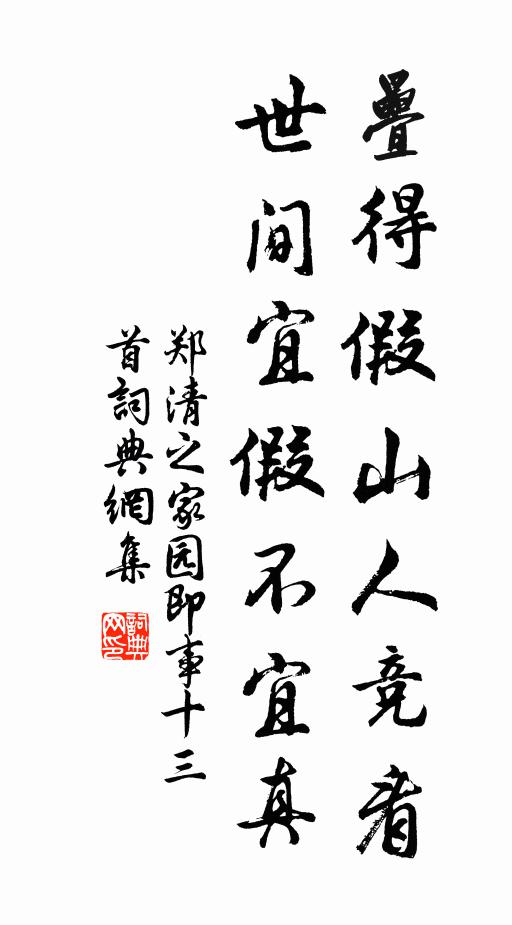 疊得假山人竞看
世间宜假不宜真
郑清之家园即事十三
首詞典網集
詞典
网印